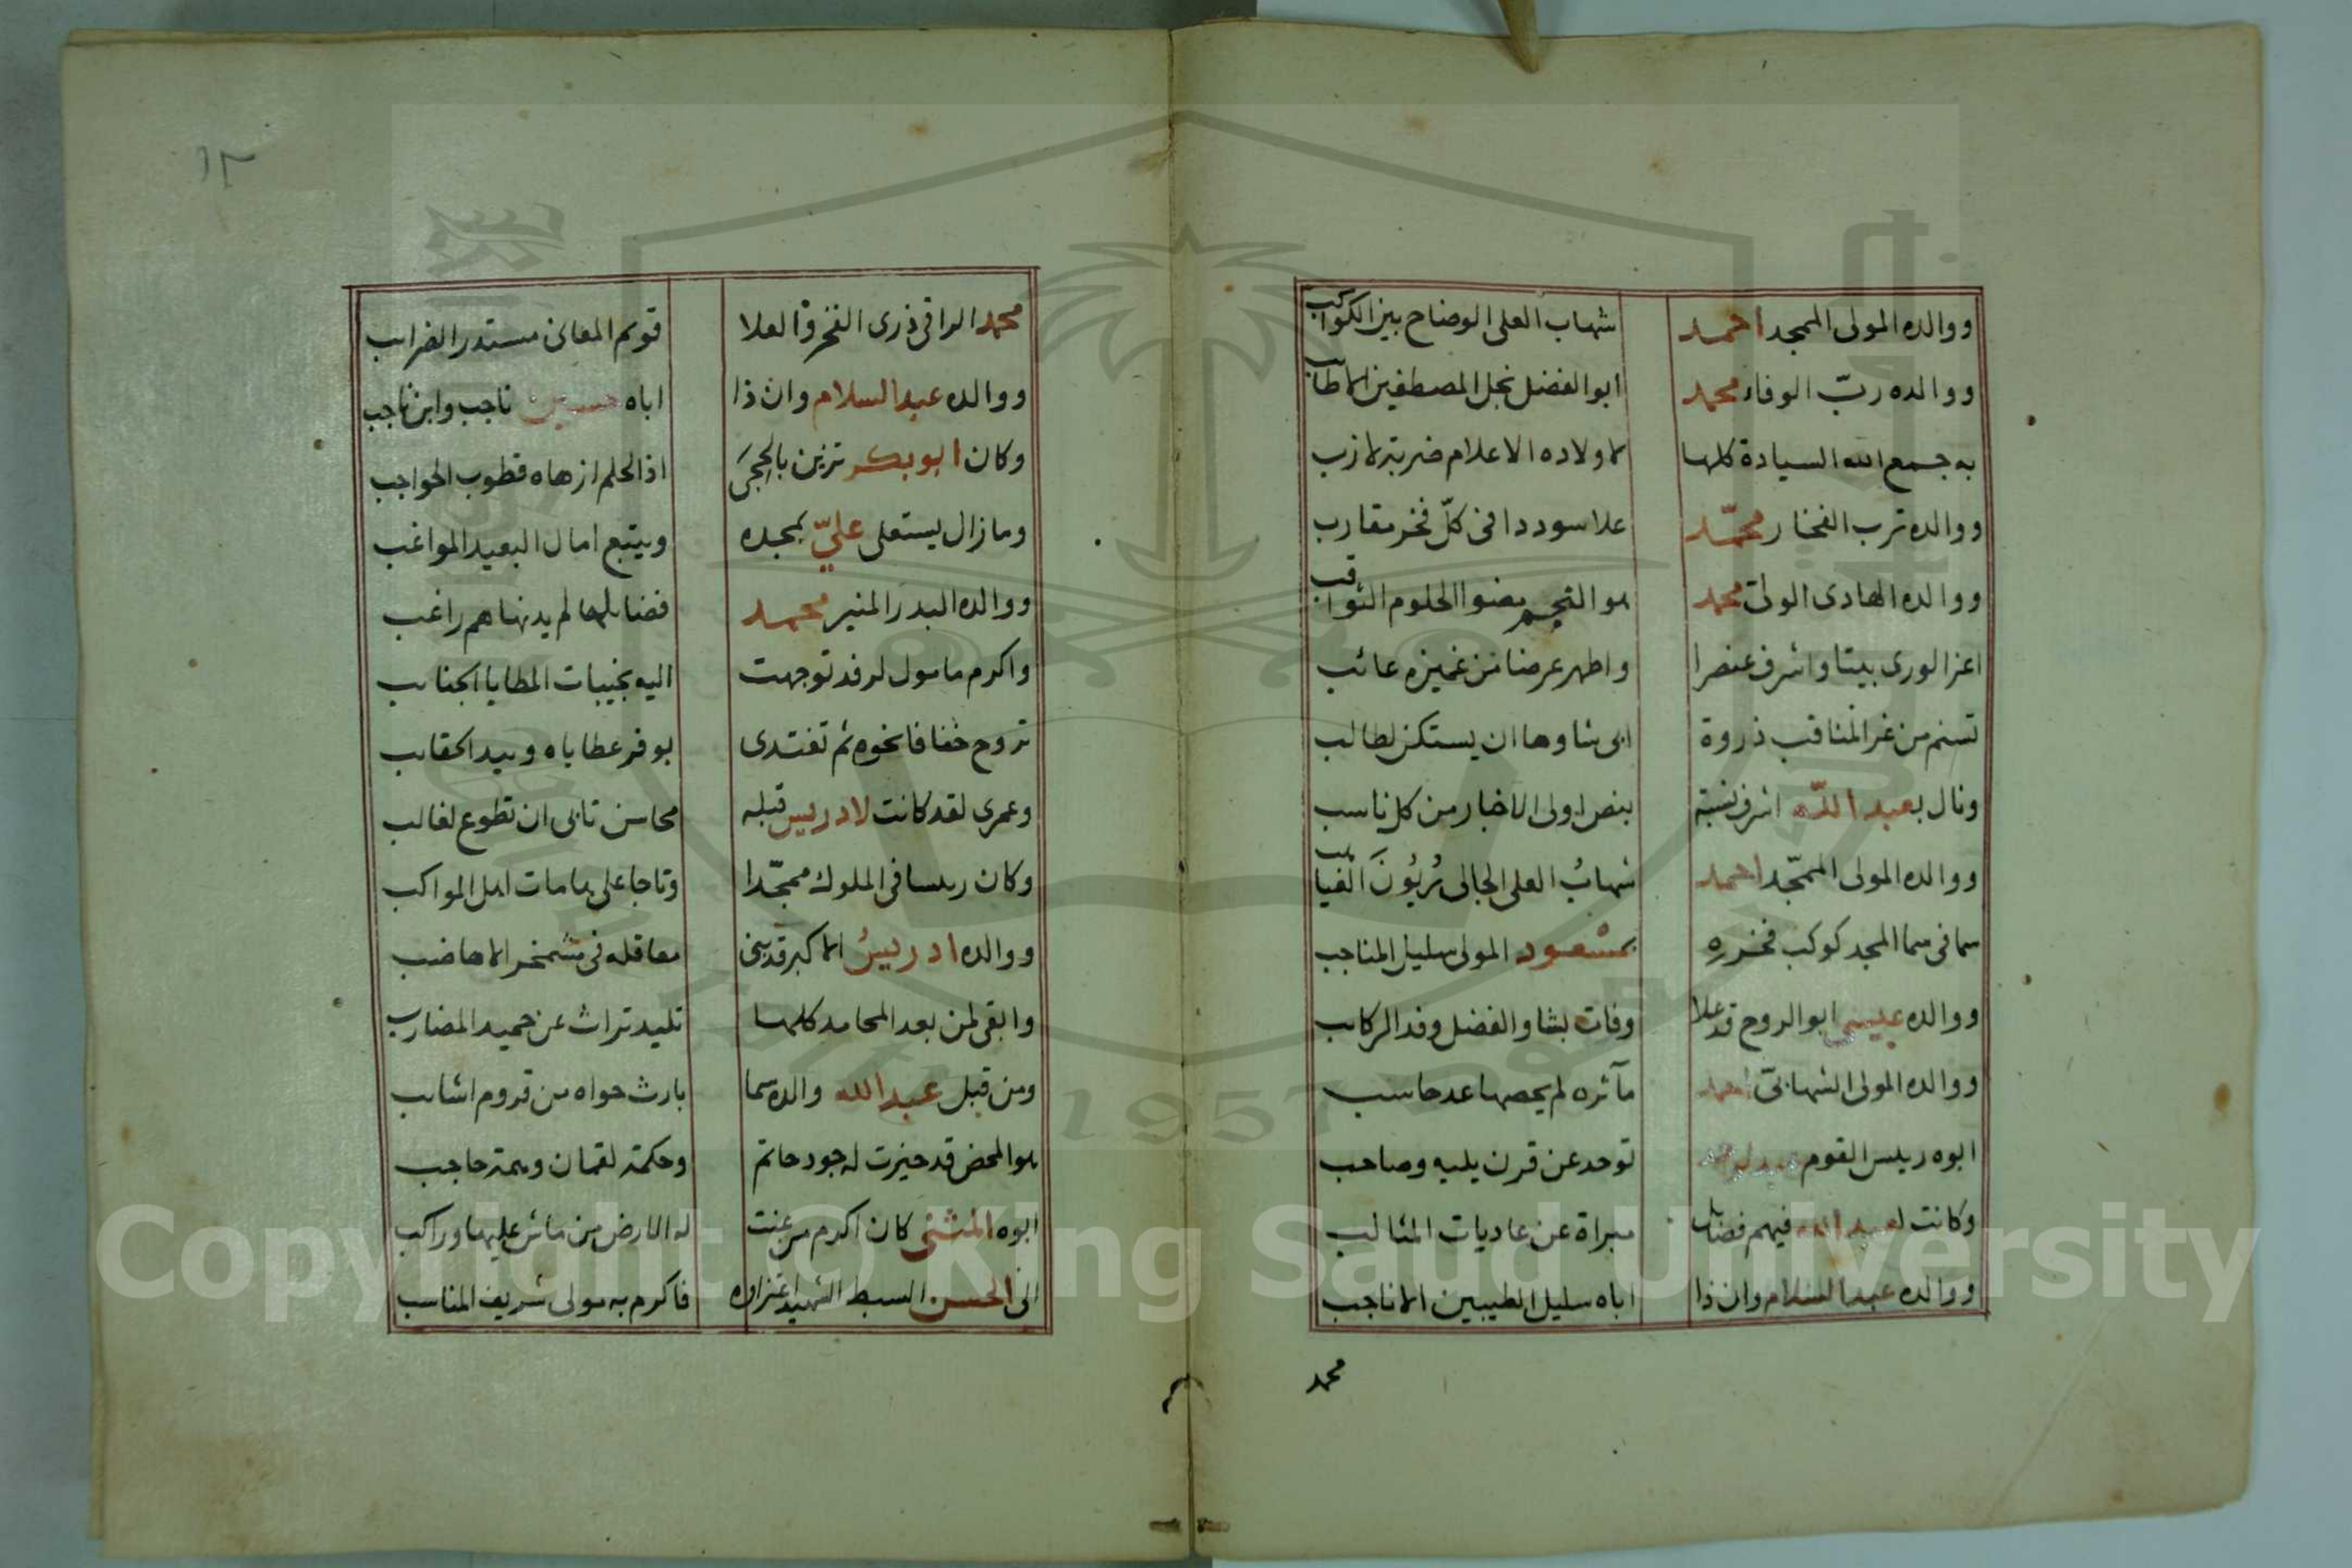 ووالده المولى الممجد احمد شهاب العلى الوضاح بين الكواكب
ووالده ربّ الوفاء محمد ابو الفضل نجل المصطفين الاطايب
به جمع الله السيادة كلها لاولاده الاعلام ضربة لازب
ووالده ترب الفخار محمّد علا سوددا فى كلّ فخر مقارب
ووالده الهادى الولى محمد هو النجم بضوا الحلوم الثواقب
اعز الورى بيتا واشرف عنصرا واطهر عرضا من غميزه عائب
تسنم من غر المناقب ذروة ابى شاوها ان يستكن لطالب
ونال بعبد اللّه اشرف نسبة بنص اولى الاخبار من كل ناسب
ووالده المولى الممجّد احمد شهابُ العلى الجالى
سما فى سما المجد كوكب فخره بمسعود المولى سليل المناجب
ووالده عيسى ابو الروح قد علا وفات بشاو الفضل وفد الركاب
ووالده المولى الشهابىّ احمد مآثره لم يحصها عد حاسب
ابوه رييس القوم توحد عن قرن يليه وصاحب
وكانت لعبد الله فيهم فضايل مبراة عن عاديات المثالب
ووالده عبد السلام وان ذا اباه سليل الطيبين الاناجب
محمد
١٣
محمد الراقى ذرى الفخر والعلا قويم المعانى مستدر الضرايب
ووالده عبد السلام وان ذا اباه حسين ناجب وابن ناجب
وكان ابو بكر تزين بالحجىَ اذ الحلم ازهاه قطوب الحواجب
وما زال يستعلى عليّ بمجده ويتبع امال البعيد المواغب
ووالده البدر المنير محمد فضايلها لم يدنها هم راغب
واكرم مامول لرفد توجهت اليه نجيبات المطايا الجنايب
تروح خفافا نحوه ثم تغتدى بوفر عطاياه وبيد الحقايب
وعمرى لقد كانت لادريس قبله محاسن تابى ان تطوع لغالب
وكان رييسا فى الملوك ممجّدا وتاجا على هامات اهل المواكب
ووالده ادريسُ الاكبر قد بنى معاقله فى مشمخر الاهاضب
وابقى لمن بعد المحامد كلها تليد تراث عن حميد المضارب
ومن قبل عبد الله والده سما بارث حواه من قروم اشايب
هو المحض قد حيزت له جود حاتم وحكمة لقمان وهمة حاجب
ابوه المثنى كان اكرم من عنت له الارض من ماش عليها وراكب
الى الحسن السبط الشهيد اعتزاوه فاكرم به مولى شريف المناسب
Copyright © King Saud University
1957